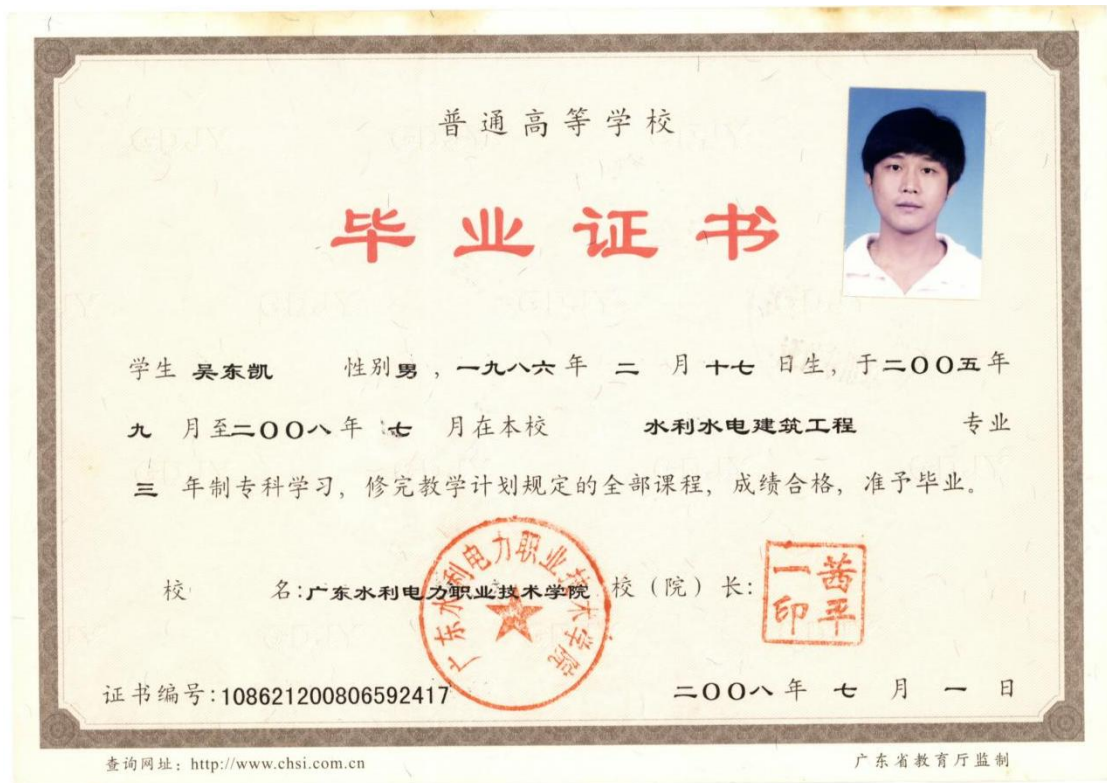 普通高等学校
毕业证书
学生 吴东凯 性别男，一九八六年 二 月 十七 日生，于二〇〇五年
九 月至二〇〇八年 七 月在本校 水利水电建筑工程 专业
三 年制专科学习，修完教学计划规定的全部课程，成绩合格，准予毕业。
广东水利电力职业技术学院
校 名：广东水利电力职业技术学院 校（院）长：
茜平一印
证书编号：108621200806592417
二〇〇八年 七 月 一 日
查询网址：http://www.chsi.com.cn
广东省教育厅监制